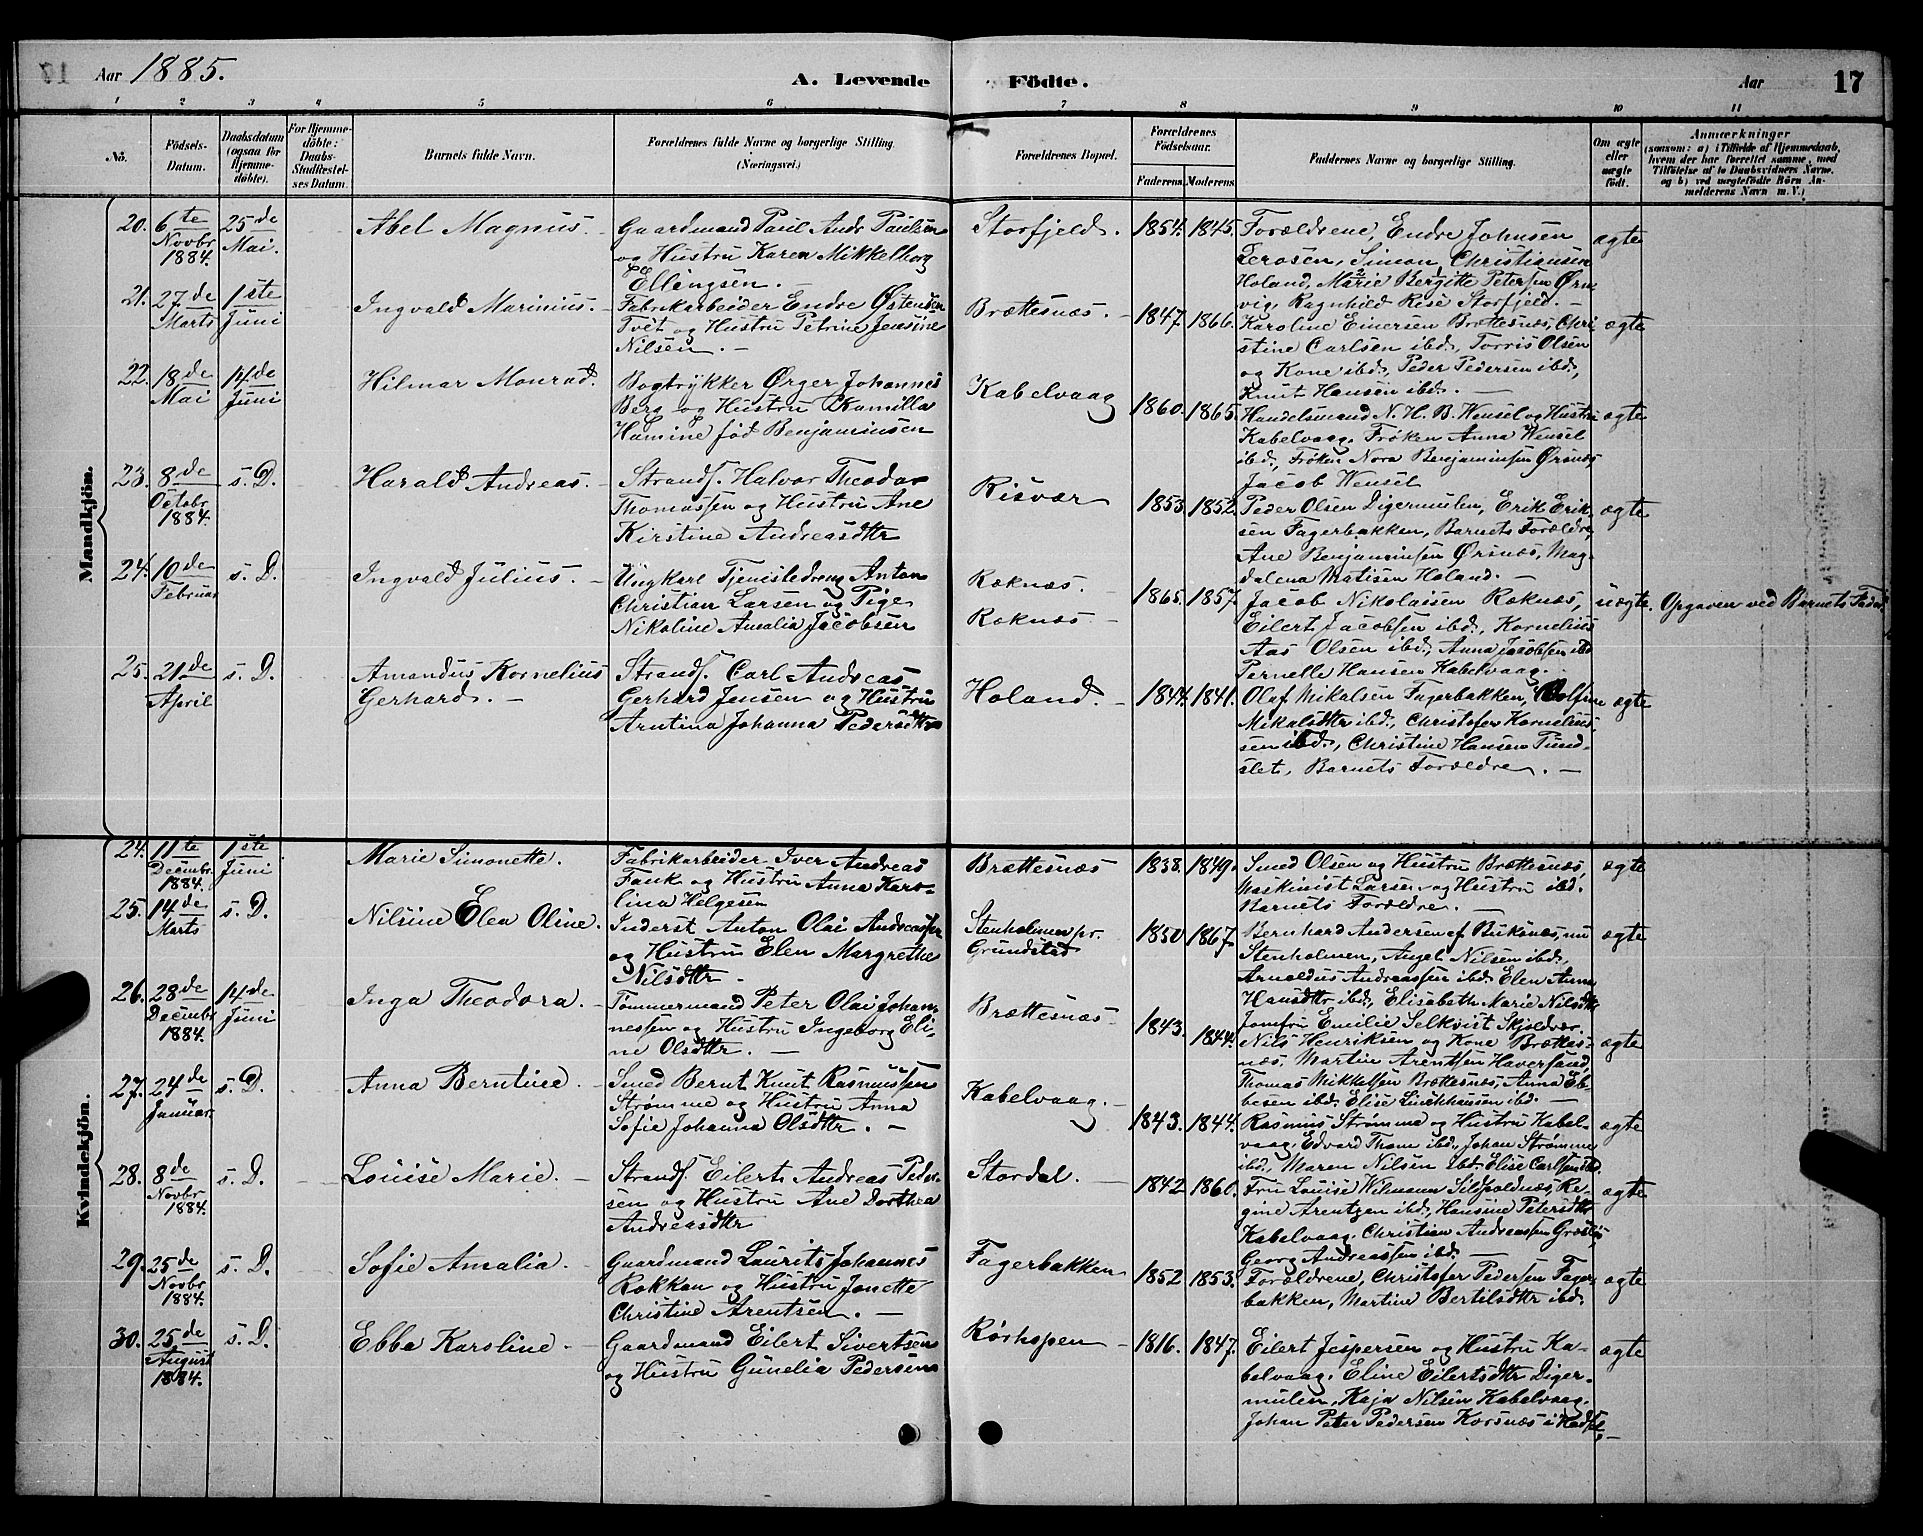 Aar 1885.
A. Levende Födte.
Aar
17
1 2 3 4 5 6 7 8 9 10 11
No.
Födsels-
Datum.
Daabsdatum
(ogsaa for
Hjemme-
döbte).
For Hjemme-
döbte:
Daabs-
Stadfæstel-
ses Datum.
Barnets fulde Navn.
Forældrenes fulde Navne og borgerlige Stilling.
(Næringsvei.)
Forældrenes Bopæl.
Forældrenes
Födselsaar.
Faderens.
Moderens.
Faddernes Navne og borgerlige Stilling.
Om ægte
eller
uægte
födt.
Anmærkninger
(saasom: a) i Tilfælde af Hjemmedaab,
hvem der har forrettet samme, med
Tilföielse af to Daabsvidners Navne,
og b) ved uægtefödte Börn An-
melderens Navn m. V.)
Mandkjön.
20.
6te
Novbr
1884.
25de
Mai.
Abel Magnus.
Gaardmand Paul Andr. Paulsen
og Hustru Karen Mikkelborg
Ellingsen.
Storfjeld.
1854. 1845.
Forældrene, Endre Johnsen
Lerosen, Simon Christiansen
Holand, Marie Bergitte Petersen Ørn-
vig, Ragnhild Rise Storfjeld. –
ægte
21.
27de
Marts
1ste
Juni
Ingvald Marinius. –
Fabrikarbeider Endre Østensen
Tvet og Hustru Petrine Jensine
Nilsen. –
Brættesnæs. –
1847. 1866.
Karoline Einersen Brættesnæs, Chri-
stine Carlsen ibd., Torris Olsen
og Kone ibd., Peder Pedersen ibd.,
Knut Hansen ibd. –
ægte
22.
18de
Mai
14de
Juni
Hilmar Monrad.
Bogtrykker Ørger Johannes
Berg og Hustru Kamilla
Hamine fød Benjaminsen
Kabelvaag
1860. 1865.
Handelsmand N. H. B. Wensel og Hustru
Kabelvaag, Frøken Anna Wensel
ibd., Frøken Nora Benjaminsen Ørsnæs,
Jacob Wensel
ægte
23.
8de
Octobr
1884.
s. D.
Harald Andreas. –
Strands. Halvor Theodor
Thomassen og Hustru Ane
Kirstine Andreasdtr
Risvær
1853 1852.
Peder Olsen Digermulen, Erik Erik-
sen Fagerbakken, Barnets Forældre,
Ane Benjaminsen Ørsnæs, Mag-
dalena Matisen Holand. –
ægte
24.
10de
Februar
s. D.
Ingvald Julius. –
Ungkarl Tjenestedreng Anton
Christian Larsen og Pige
Nikoline Amalia Jacobsen
Ræknæs.
Ræknæs.
1865. 1857.
Jacob Nikolaisen Ræknæs,
Eilert Jacobsen ibd., Kornelius
Aas Olsen ibd., Anna Jacobsen ibd
Pernelle Hansen Kabelvaag
uægte.
Opgaven ved Barnets Fader
25.
21de
April
s. D.
Amandus Kornelius
Gerhard. –
Strands. Carl Andreas
Gerhard Jensen og Hustru
Arntina Johanna Pedersdtr
Holand. –
1844. 1841.
Olaf Mikalsen Fagerbakken,
Mikalsdtr ibd., Christofer Kornelius-
sen ibd., Christine Hansen Tund-
slet, Barnets Forældre. –
ægte
Kvindekjön.
24.
11te
Decembr
1884.
1ste
Juni
Marie Simonette.
Fabrikarbeider Iver Andreas
Fank og Hustru Anna Karo-
lina Helgesen
Brættesnæs
1838. 1849.
Smed Olsen og Hustru Brættesnæs,
Maskinist Larsen og Hustru ibd.
Barnets Forældre. –
ægte
25.
14de
Marts
s. D.
Nilsine Elen Oline.
Inderst Anton Olai Andreassen
og Hustru Elen Margrethe
Nilsdtr –
Stenholmen pr.
Grundstad
1850 1867
Bernhard Andersen af Buksnæs, nu
Stenholmen, Angel Nilsen ibd.,
Arnoldus Andreassen ibd. Elen Anna
Hansdtr ibd., Elisabeth Marie Nilsdtr
ægte
26.
28de
Decembr
1884.
14de
Juni
Inga Theodora. –
Tømmermand Peter Olai Johan-
nessen og Hustru Ingeborg Eli-
ne Olsdtr. –
Brættesnæs
1843. 1844.
Jomfru Emilie Selkvist Skjoldvær.
Nils Henriksen og Kone Brættes-
næs, Martin Arentsen Haversand,
Thomas Mikkelsen Brættesnæs, Anna Eb-
besen ibd. Elise Linckhausen ibd. –
ægte
27.
24de
Januar
s. D.
Anna Berntine. –
Smed Bernt Knut Rasmussen
Strømme og Hustru Anna
Sofie Johanna Olsdtr. –
Kabelvaag. –
1843. 1844.
Rasmus Strømme og Hustru Kabel-
vaag, Edvard Thane ibd. Johan Strømme
ibd., Maren Nilsen ibd. Elise Carlsen ibd.
ægte
28.
8de
Novbr
1884.
s. D.
Louise Marie. –
Strands. Eilert Andreas Peder-
sen og Hustru Ane Dorthea
Andreasdtr
Stordal. –
1842 1860.
Fru Louise Wilmann Silpoldnæs, Re-
gine Arentzen ibd., Hansine Petersdtr
Kabelvaag. Christian Andreassen
Georg Andreassen ibd. –
ægte
29.
25de
Novbr
1884.
s. D.
Sofie Amalia. –
Gaardmand Laurits Johannes
Rokkan og Hustru Jonette
Christine Arentsen. –
Fagerbakken
1852 1853.
Forældrene, Christofer Pedersen Fager-
bakken, Martine Bertilsdtr ibd.
ægte
30.
25de
August
1884.
s. D
Ebba Karoline. –
Gaardmand Eilert Sivertsen
og Hustru Gunelia Pedersen
Rørhopen –
1816. 1847.
Eilert Jespersen og Hustru Ka-
belvaag, Eline Eilertsdtr Diger-
mulen, Kaja Nilsen Kabelvaag.
Johan Peter Pedersen Korsnæs i Hadsel. –
ægte